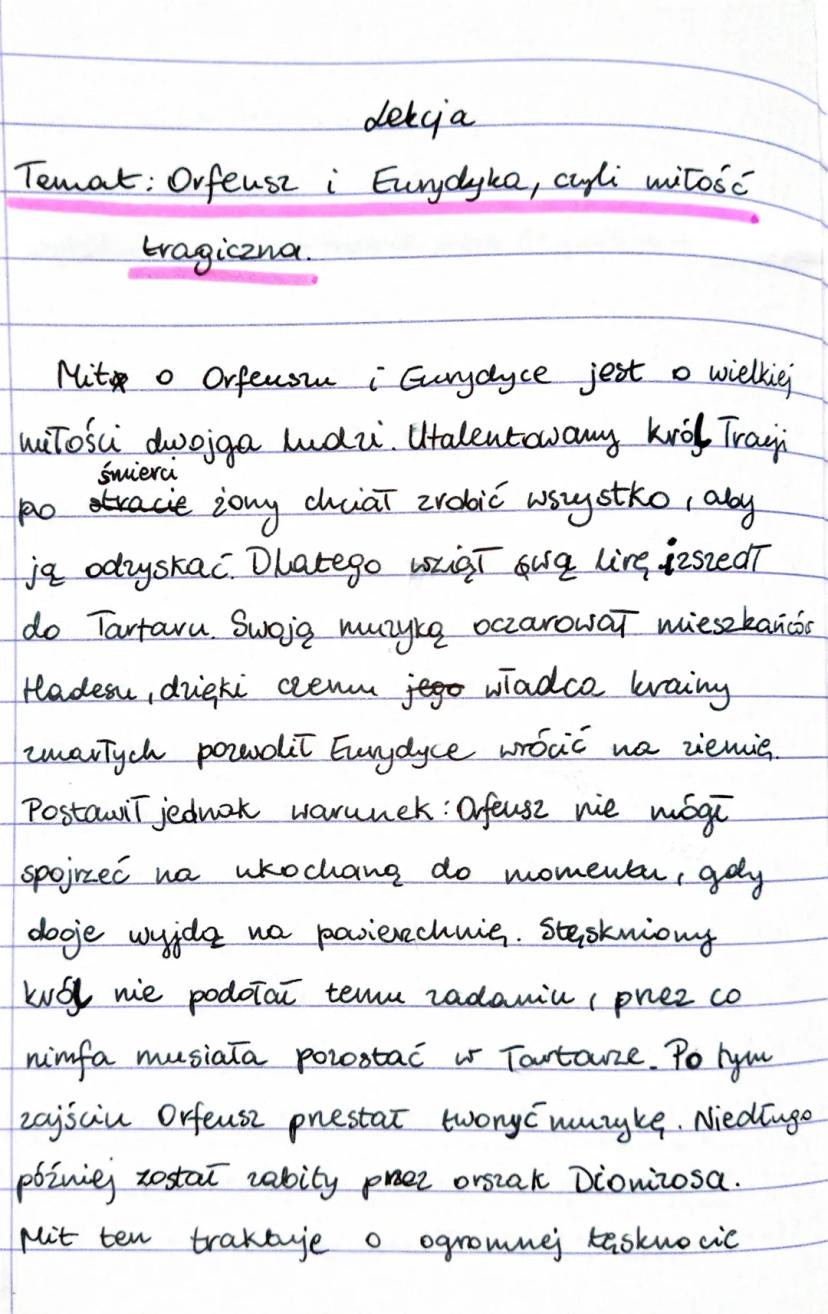 Lekcja
Temat: Orfeusz i Eurydyka, czyli miłość
tragiczna.
Mit o Orfeuszu i Eurydyce jest o wielkiej
miłości dwojga ludzi. Utalentowany król Tracji
śmierci
po stracie żony chciał zrobić wszystko, aby
ją odzyskać. Dlatego wziął swą lirę i zszedł
do Tartaru. Swoją muzyką oczarował mieszkańców
Hadesu, dzięki czemu jego władca krainy
zmarłych pozwolił Eurydyce wrócić na ziemię.
Postawił jednak warunek: Orfeusz nie mógł
spojrzeć na ukochaną do momentu, gdy
dwoje wyjdą na powierzchnię. Stęskniony
król nie podołał temu zadaniu, przez co
nimfa musiała pozostać w Tartarze. Po tym
zajściu Orfeusz przestał tworzyć muzykę. Niedługo
później został zabity przez orszak Dionizosa.
Mit ten traktuje o ogromnej tęsknocie